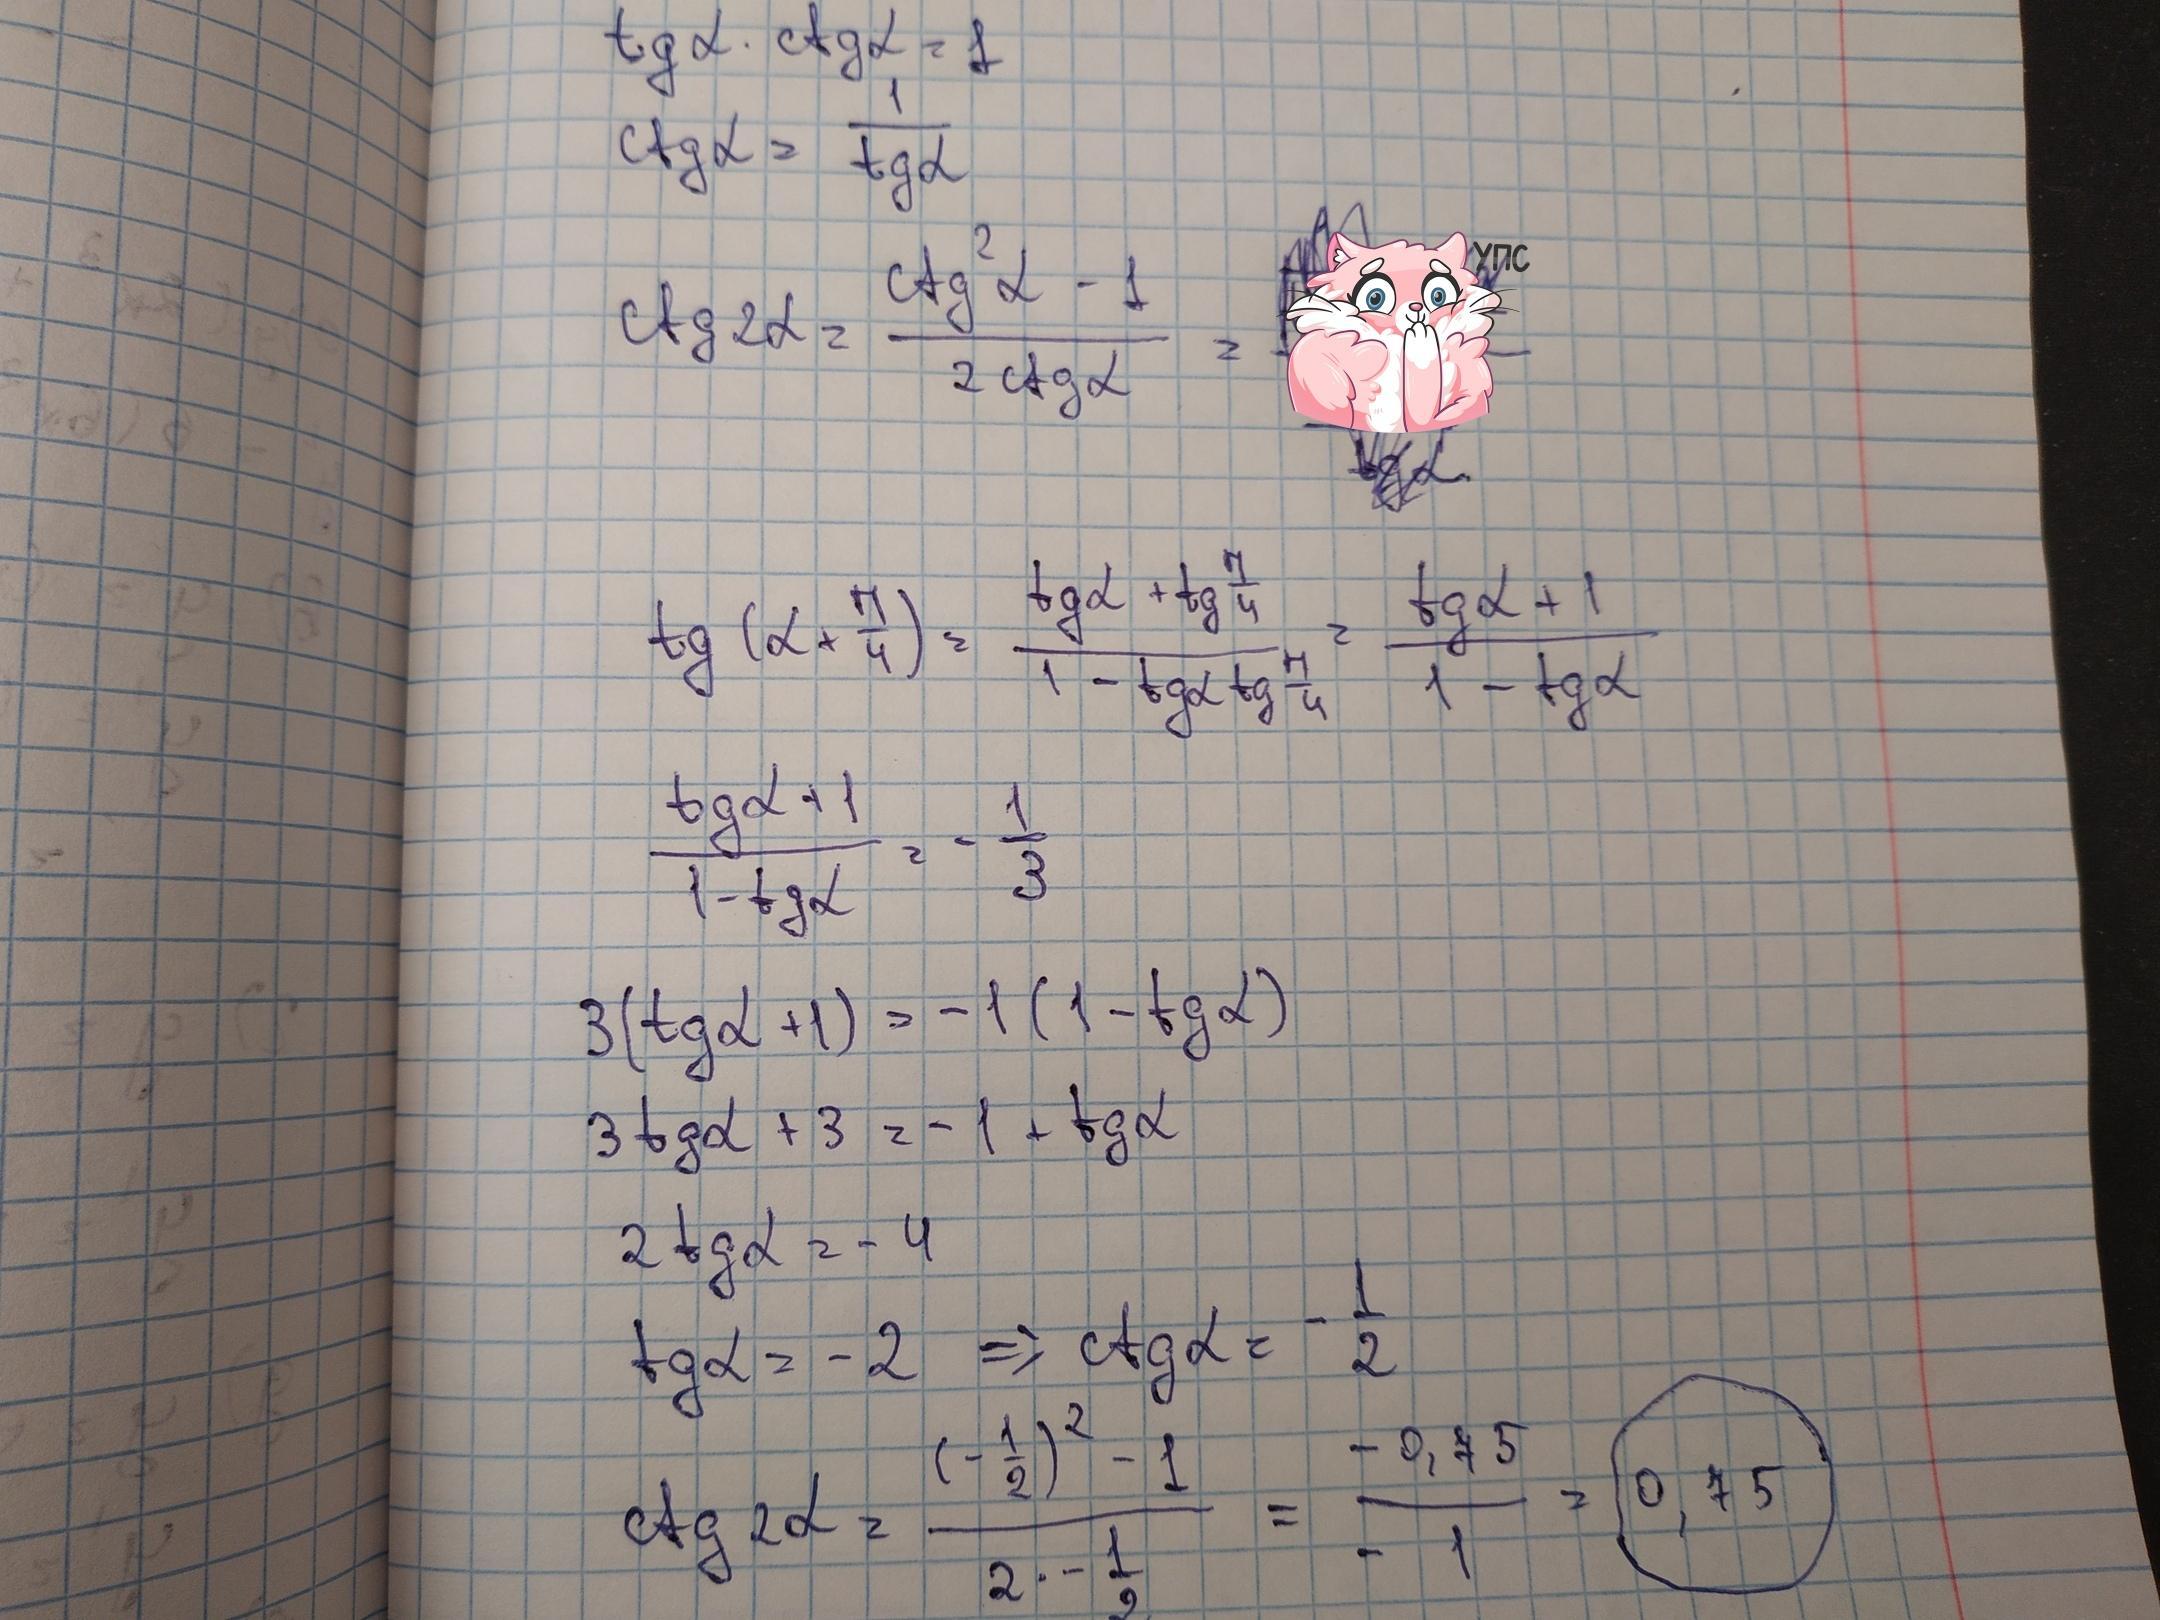 tgα · ctgα = 1
ctgα = 1/tgα
ctg2α = (ctg²α - 1)/(2ctgα) =
УПС
tgα
tg(α + π/4) = (tgα + tg π/4)/(1 - tgα tg π/4) = (tgα + 1)/(1 - tgα)
(tgα + 1)/(1 - tgα) = - 1/3
3(tgα + 1) = -1(1 - tgα)
3tgα + 3 = -1 + tgα
2tgα = -4
tgα = -2 => ctgα = - 1/2
ctg2α = ((-1/2)² - 1)/(2 · - 1/2) = (-0,75)/(-1) = 0,75